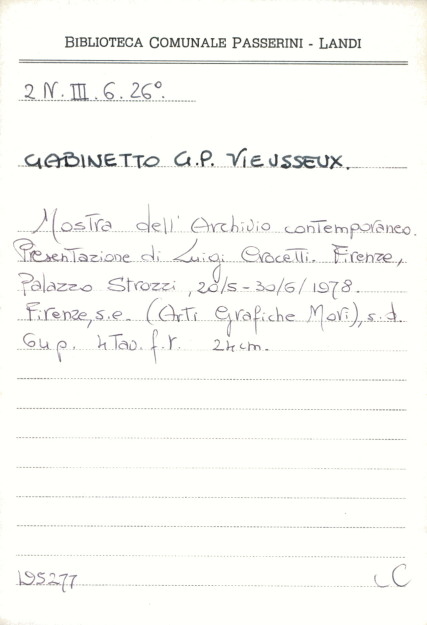 BIBLIOTECA COMUNALE PASSERINI - LANDI
2 N. III. 6. 26°.
GABINETTO G.P. VIEUSSEUX.
Mostra dell'Archivio contemporaneo.
Presentazione di Luigi Crocetti. Firenze,
Palazzo Strozzi, 20/5-30/6/1978.
Firenze, s.e. (Arti Grafiche Mori), s.d.
64 p. 4 Tav. f.t. 24 cm.
195277
C